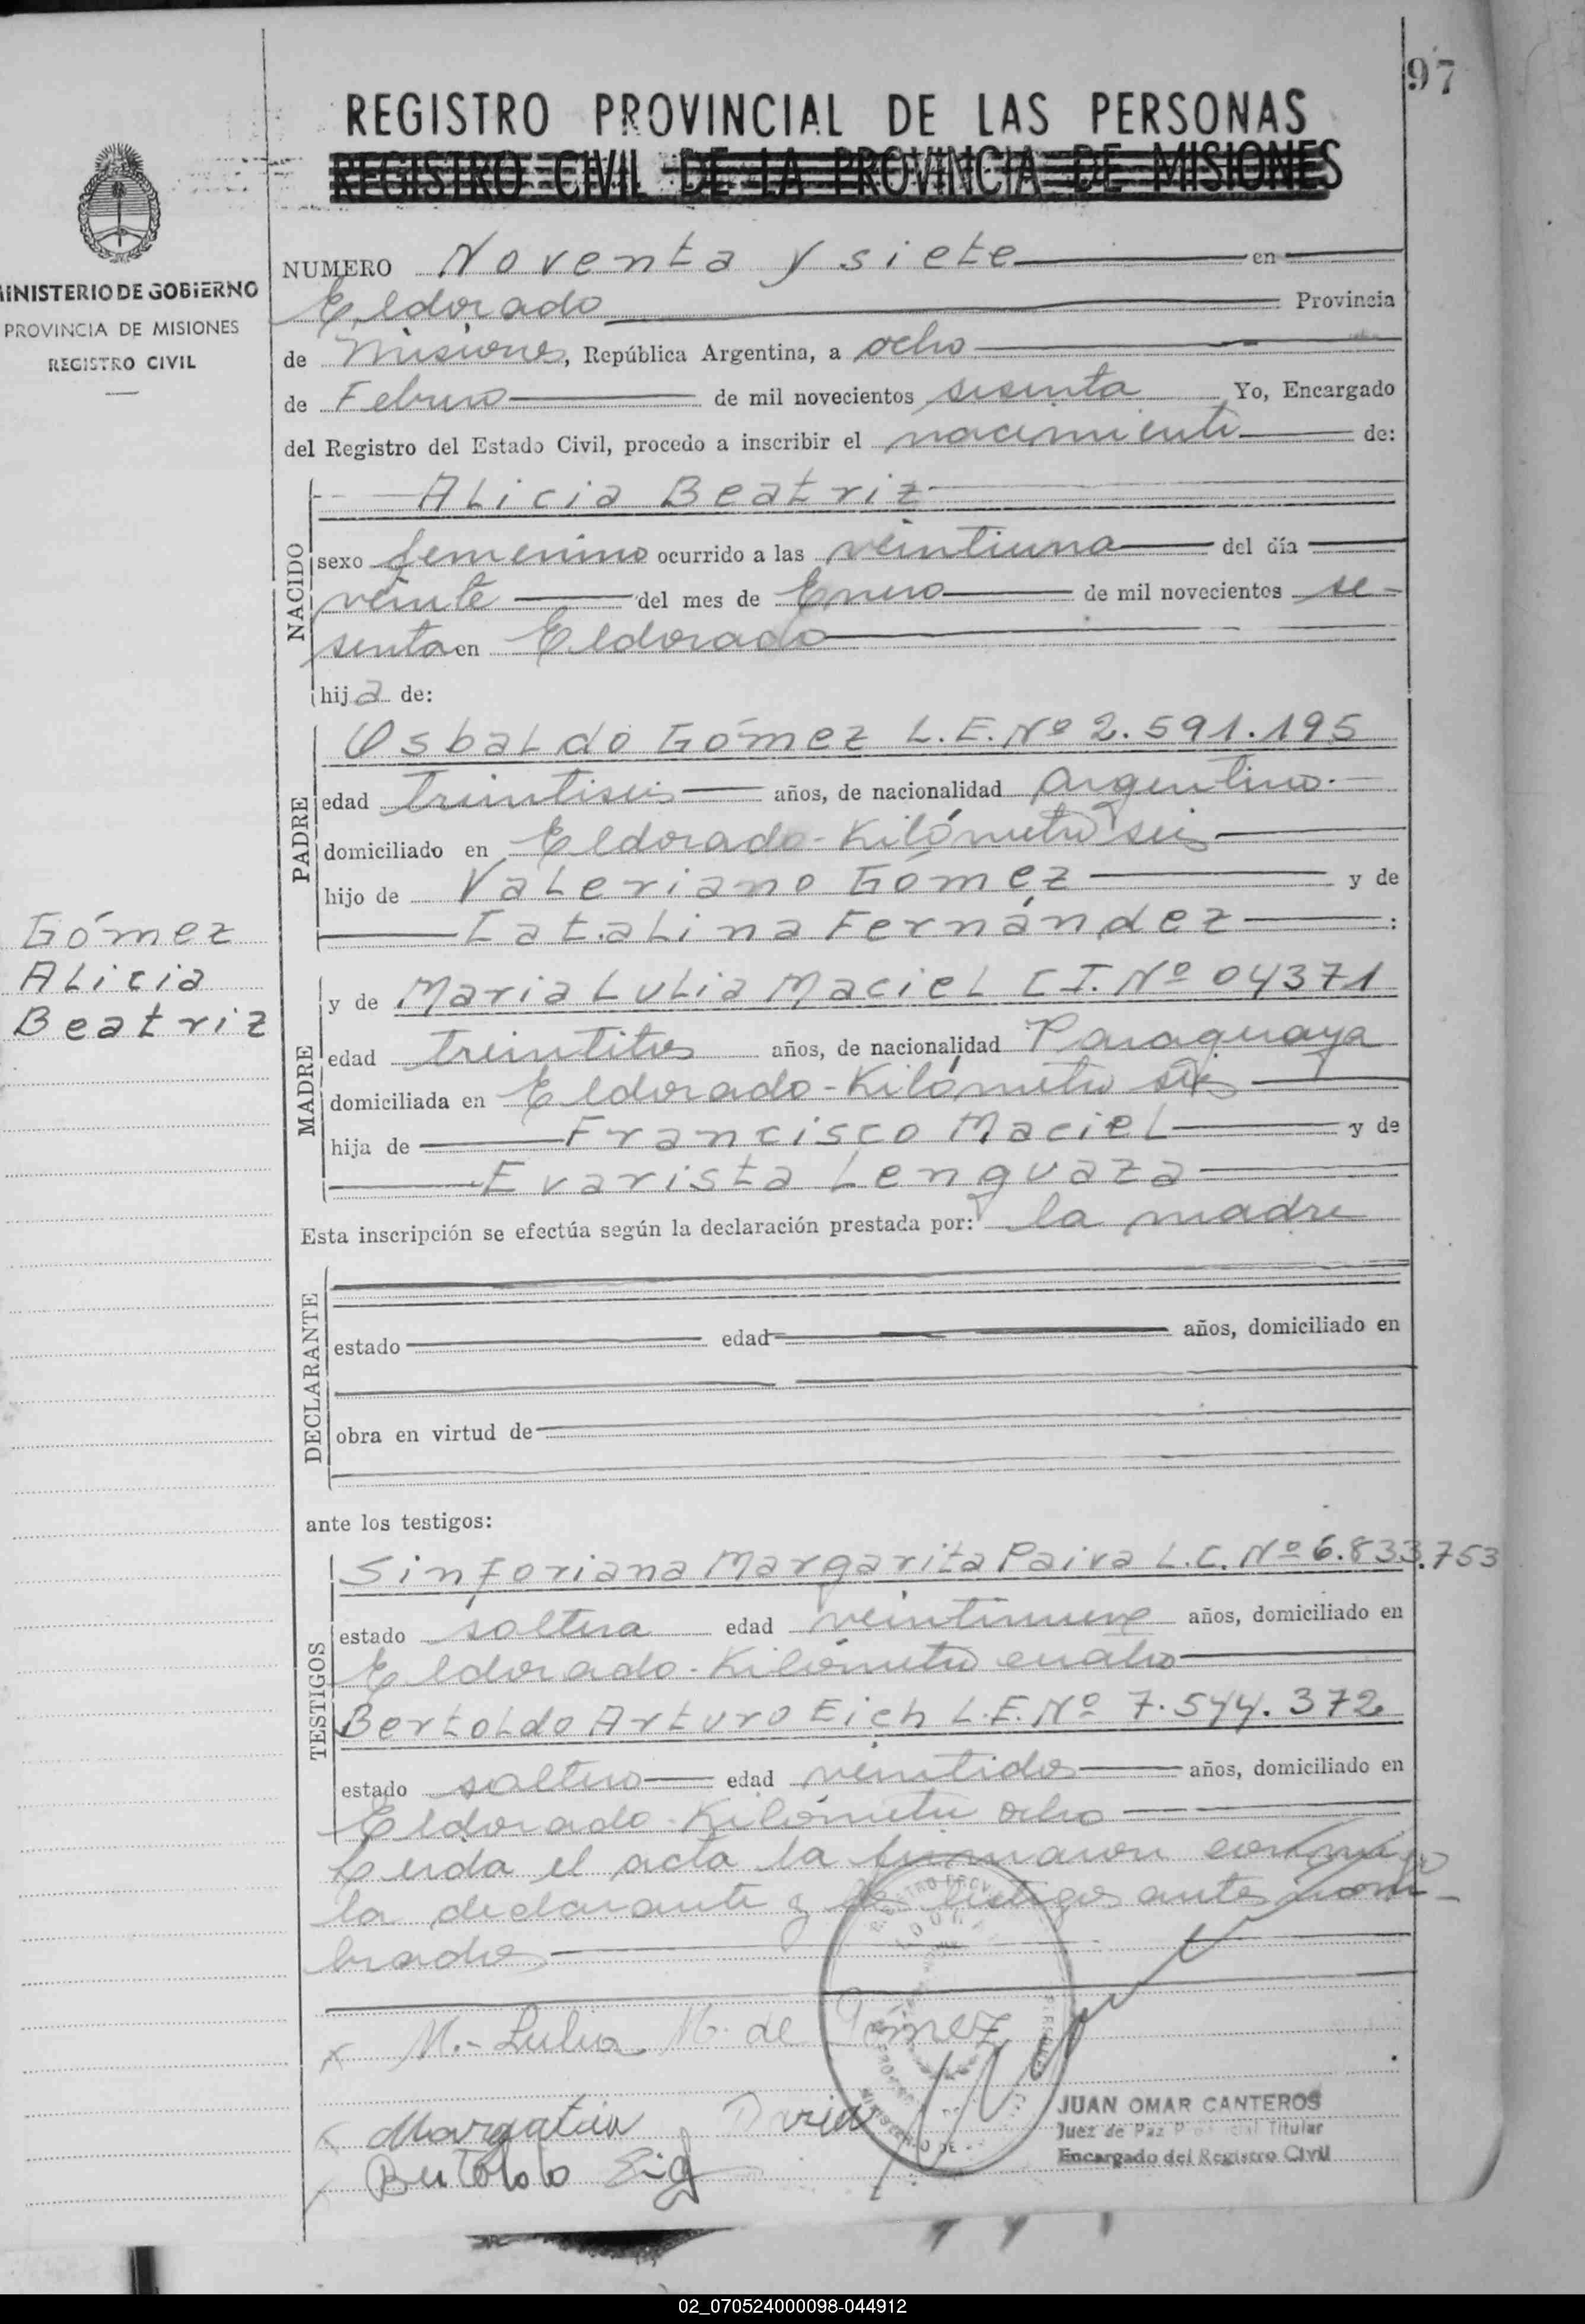 97
REGISTRO PROVINCIAL DE LAS PERSONAS
REGISTRO CIVIL DE LA PROVINCIA DE MISIONES
MINISTERIO DE GOBIERNO
PROVINCIA DE MISIONES
REGISTRO CIVIL
NUMERO Noventa y siete en
Eldorado Provincia
de Misiones, República Argentina, a ocho
de Febrero de mil novecientos sesenta Yo, Encargado
del Registro del Estado Civil, procedo a inscribir el nacimiento de:
NACIDO
Alicia Beatriz
sexo femenino ocurrido a las veintiuna del día
veinte del mes de Enero de mil novecientos se-
senta en Eldorado
hija de:
PADRE
Osbaldo Gómez L.E. Nº 2.591.195
edad treintiseis años, de nacionalidad Argentina
domiciliado en Eldorado-Kilómetro seis
hijo de Valeriano Gómez y de
Catalina Fernández :
Gómez
Alicia
Beatriz
MADRE
y de Maria Lulia Maciel C I. Nº 04371
edad treintitres años, de nacionalidad Paraguaya
domiciliada en Eldorado-Kilómetro seis
hija de Francisco Maciel y de
Evarista Lenguaza
Esta inscripción se efectúa según la declaración prestada por: la madre
DECLARANTE
estado edad años, domiciliado en
obra en virtud de
ante los testigos:
TESTIGOS
Sinforiana Margarita Paiva L.C. Nº 6.833.753
estado soltera edad veintinueve años, domiciliado en
Eldorado-Kilómetro cuatro
Bertoldo Arturo Eich L.E. Nº 7.544.372
estado soltero edad veintidos años, domiciliado en
Eldorado-Kilómetro ocho
Leida el acta la firmaron conmigo
la declarante y los testigos antes nom-
brados
x M.- Lulia M. de Gómez
x Margarita
Bertoldo
JUAN OMAR CANTEROS
Juez de Paz Titular
Encargado del Registro Civil
02_070524000098-044912